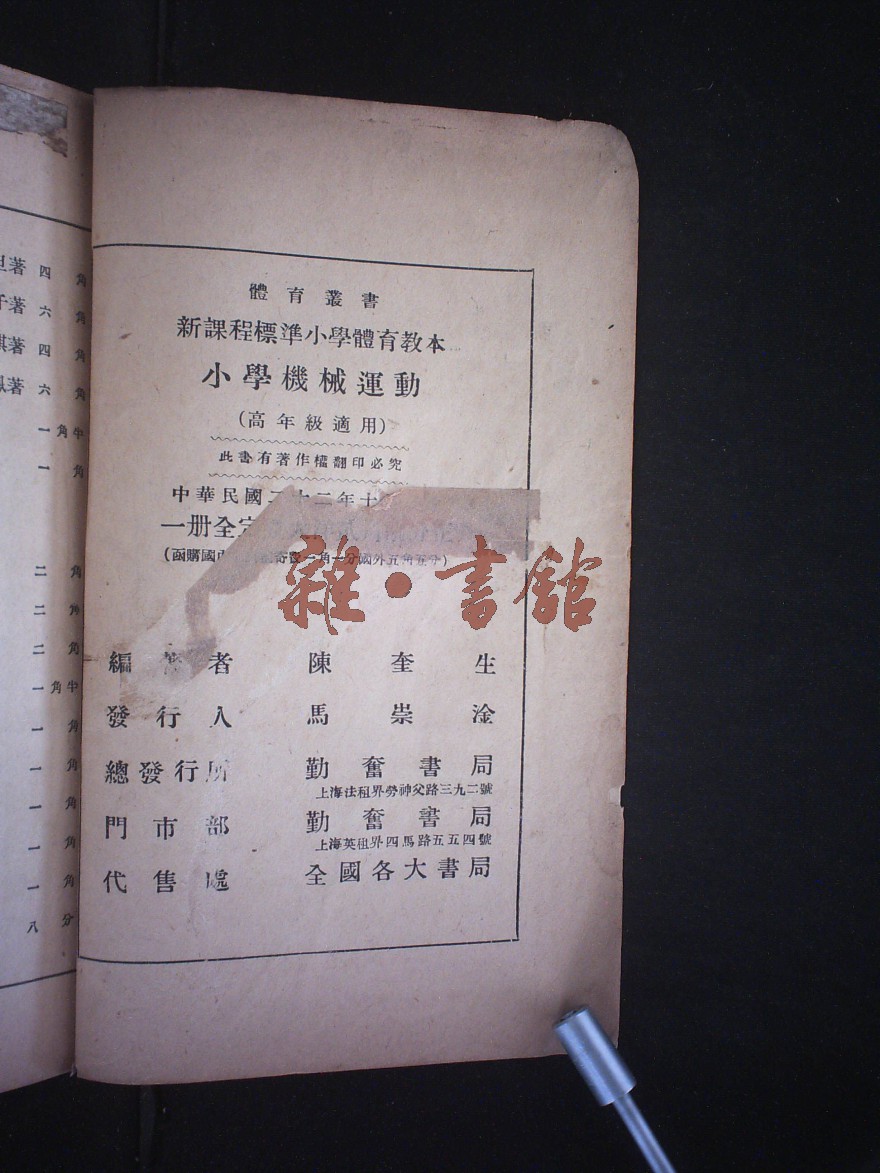 體育叢書
新課程標準小學體育教本
小學機械運動
(高年級適用)
此書有著作權翻印必究
中華民國二十二年十
一册全定
(函購國 寄費一角一分國外五角五分)
雜·書館
編 者 陳奎生
發行人 馬崇淦
總發行所 勤奮書局
上海法租界勞神父路三九二號
門市部 勤奮書局
上海英租界四馬路五五四號
代售處 全國各大書局
著 四角
著 六角
著 四角
著 六角
一角半
一角
二角
二角
二角
一角半
一角
一角
一角
一角
一角
八分